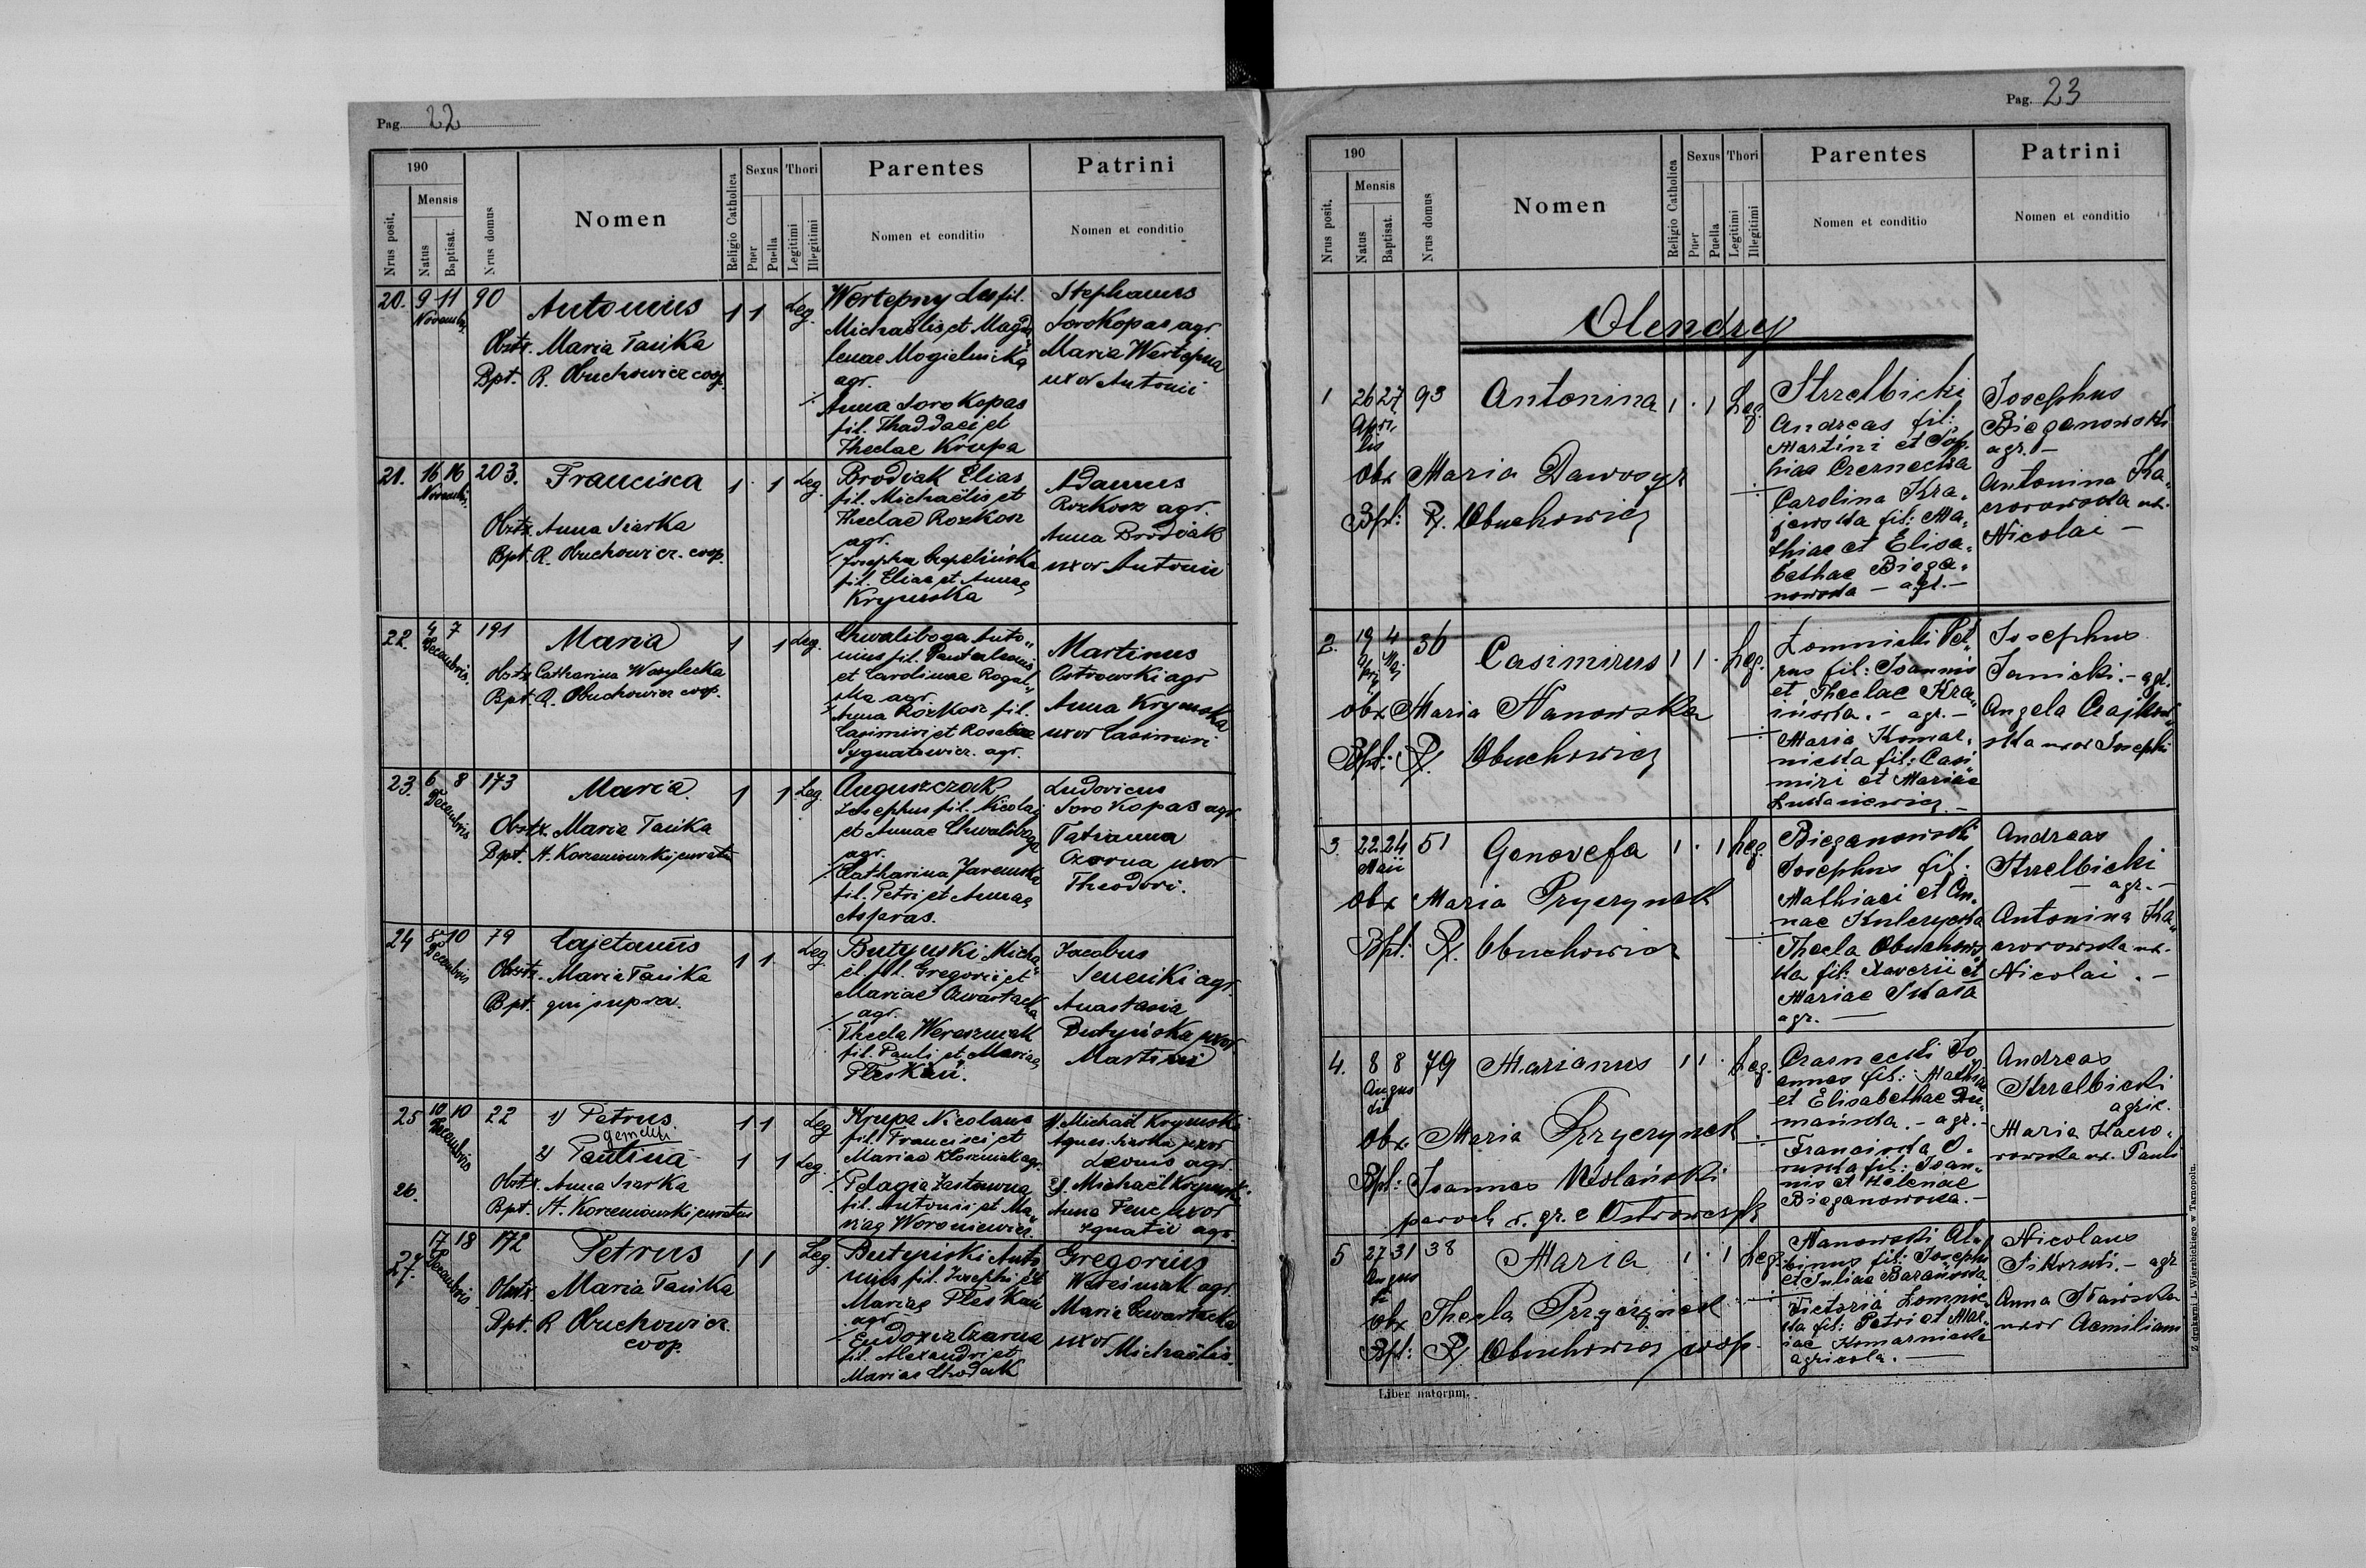 Pag. 22
190
Mensis
Nrus posit.
Natus
Baptisat.
Nrus domus
Nomen
Religio Catholica
Sexus
Puer
Puella
Thori
Legitimi
Illegitimi
Parentes
Nomen et conditio
Patrini
Nomen et conditio
20. 9 11 90 Antonius 1 1 Leg.
Novemb.
Obstx. Maria Tańka
Bpt. R. Obuchowicz coop.
fil.
Michaëlis et Magda
lenae Mogielnicka
agr.
Anna Sorokopas
fil. Thaddaei et
Theclae Krupa
Stephanus
Sorokopas agr
Maria Wertepna
uxor Antonii
21. 16 16 203. Francisca 1 1 Leg.
Novemb.
Obstx. Anna Siarka
Bpt. R. Obuchowicz. coop.
Brodiak Elias
fil. Michaëlis et
Theclae Rozkosz
agr.
Josepha
fil. Eliae et Annae
Krymska
Adamus
Rozkosz agr.
Anna Brodiak
uxor Antonii
22. 4 7 191 Maria 1 1 Leg.
Decembris.
Obstx. Catharina Wasylecka
Bpt. R. Obuchowicz coop.
Chwaliboga Anto„
nius fil. Pantaleonis
et Carolinae Rogal„
ska agr.
Anna Rozkosz fil.
Casimiri et Rosaliae
Sygnatowicz. agr.
Martinus
Ostrowski agr
Anna Krymska
uxor Casimiri
23. 6 8 173 Maria 1 1 Leg.
Decembris
Obstx. Maria Tańka
Bpt. A. Korzeniowski curatus
Auguszczak
Josephus fil. Nicolai
et Annae Chwaliboga
agr.
Catharina Jaremska
fil. Petri et Annae
Asparas.
Ludovicus
Sorokopas agr
Tatianna
Czarna uxor
Theodori.
24 8 10 79 Cajetanus 1 1 Leg
Decembris
Obstx. Maria Tańka
Bpt. qui supra.
Butyński Micha„
el. fil. Gregorii et
Mariae Czwartacka
agr.
Thecla Wereszniak
fil. Pauli et Mariae
Pleskań.
Jacobus
agr.
Anastasia
Butyńska uxor
Martini
25 10 10 22 1) Petrus 1 1 Leg
Decembris
gemelli
2) Paulina 1 1 Leg.
26. Obstx. Anna Siarka
Bpt. A. Korzeniowski curatus
Krupa Nicolaus
fil. Francisci et
Mariae agr.
Pelagia Zastawna
fil. Antonii et Ma„
riae Woroniewicz.
1) Michaël Krymski
Agnes Siarka uxor
Leonis agr.
2). Michaël Krymski
Anna Fenc uxor
Ignatii agr.
27. 17 18 172 Petrus 1 1 Leg.
Decembris
Obstx Maria Tańka
Bpt. R Obuchowicz.
coop.
Butyński Anto
nius fil. Josephi et
Mariae Pleskań
agr
Eudoxia Czarna
fil. Alexandri et
Mariae Chodak
Gregorius
agr.
Maria Czwartacka
uxor
Michaëlis.
Pag. 23
190
Mensis
Nrus posit.
Natus
Baptisat.
Nrus domus
Nomen
Religio Catholica
Sexus
Puer
Puella
Thori
Legitimi
Illegitimi
Parentes
Nomen et conditio
Patrini
Nomen et conditio
Olendry
1 26 27 93 Antonina 1 . 1 Leg.
Apri„
lis
Obx Maria
Bpt: R. Obuchowicz
Strzelbicki
Andreas fil:
Martini et Sop„
hiae Czernecka
Carolina Kra„
jewska fil: Ma„
thiae et Elisa„
bethae Biega„
nowska – agr. –
Josephus
Bieganowski
agr. –
Antonina Ka„
czorowska ux.
Nicolai –
2. 19 4 36 Casimirus 1 1 . Leg.
Obx Maria Nanowska
Bpt: R. Obuchowicz
Łomnicki Pet„
rus fil: Joannis
et Theclae Kra„
ińska. – agr. –
Maria Komar„
nicka fil: Casi„
miri et Mariae
Josephus
Janicki. – agr.
Angela
ska uxor Josephi
3. 22 24 51 Genovefa 1 . 1 Leg.
Maii
Obx Maria Pryczynek
Bpt: R. Obuchowicz
Bieganowski
Josephus fil:
Mathiaei et An„
nae Kulczycka
Thecla Obuchow„
ska fil: Xaverii et
Mariae
agr. –
Andreas
Strzelbicki
– agr. –
Antonina Ka„
czorowska ux.
Nicolai. –
4. 8 8 79 Marianus 1 1 . Leg.
Augus
ti
Obx. Maria Przyczynek
Bpt: Joannes Wolański
paroch r. gr. e
Czarnecki Jo
annes fil: Mathiae
et Elisabethae Du„
mańska. – agr. –
Francisca O„
ruska fil: Joan„
nis et Helenae
Bieganowska. –
Andreas
Strzelbicki
agric.
Maria Kaczo„
rowska ux. Pauli
5 27 31 38 Maria 1 . 1 Leg.
Augus
ti
Obx Thecla Przyczynek
Bpt: R Obuchowicz coop.
Nanowski Al„
binus fil: Josephi
et Juliae Barańska
Victoria Łomnic„
ka fil: Petri et Mar„
iae Komarnicka
agricola. –
Nicolaus
Sikorski. – agr
Anna
uxor Aemiliani
Liber natorum.
Z drukarni L. Wierzbickiego w Tarnopolu.